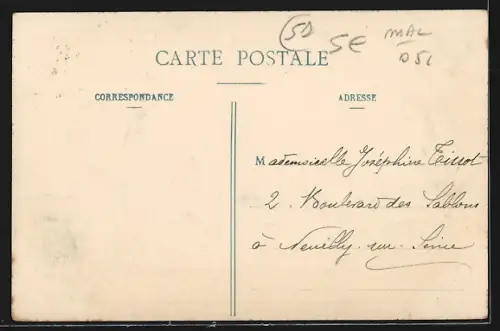 50 5€ MAL
051
CARTE POSTALE
CORRESPONDANCE
ADRESSE
Mademoiselle Joséphine Tissot
2 Boulevard des Sablons
à Neuilly-sur-Seine